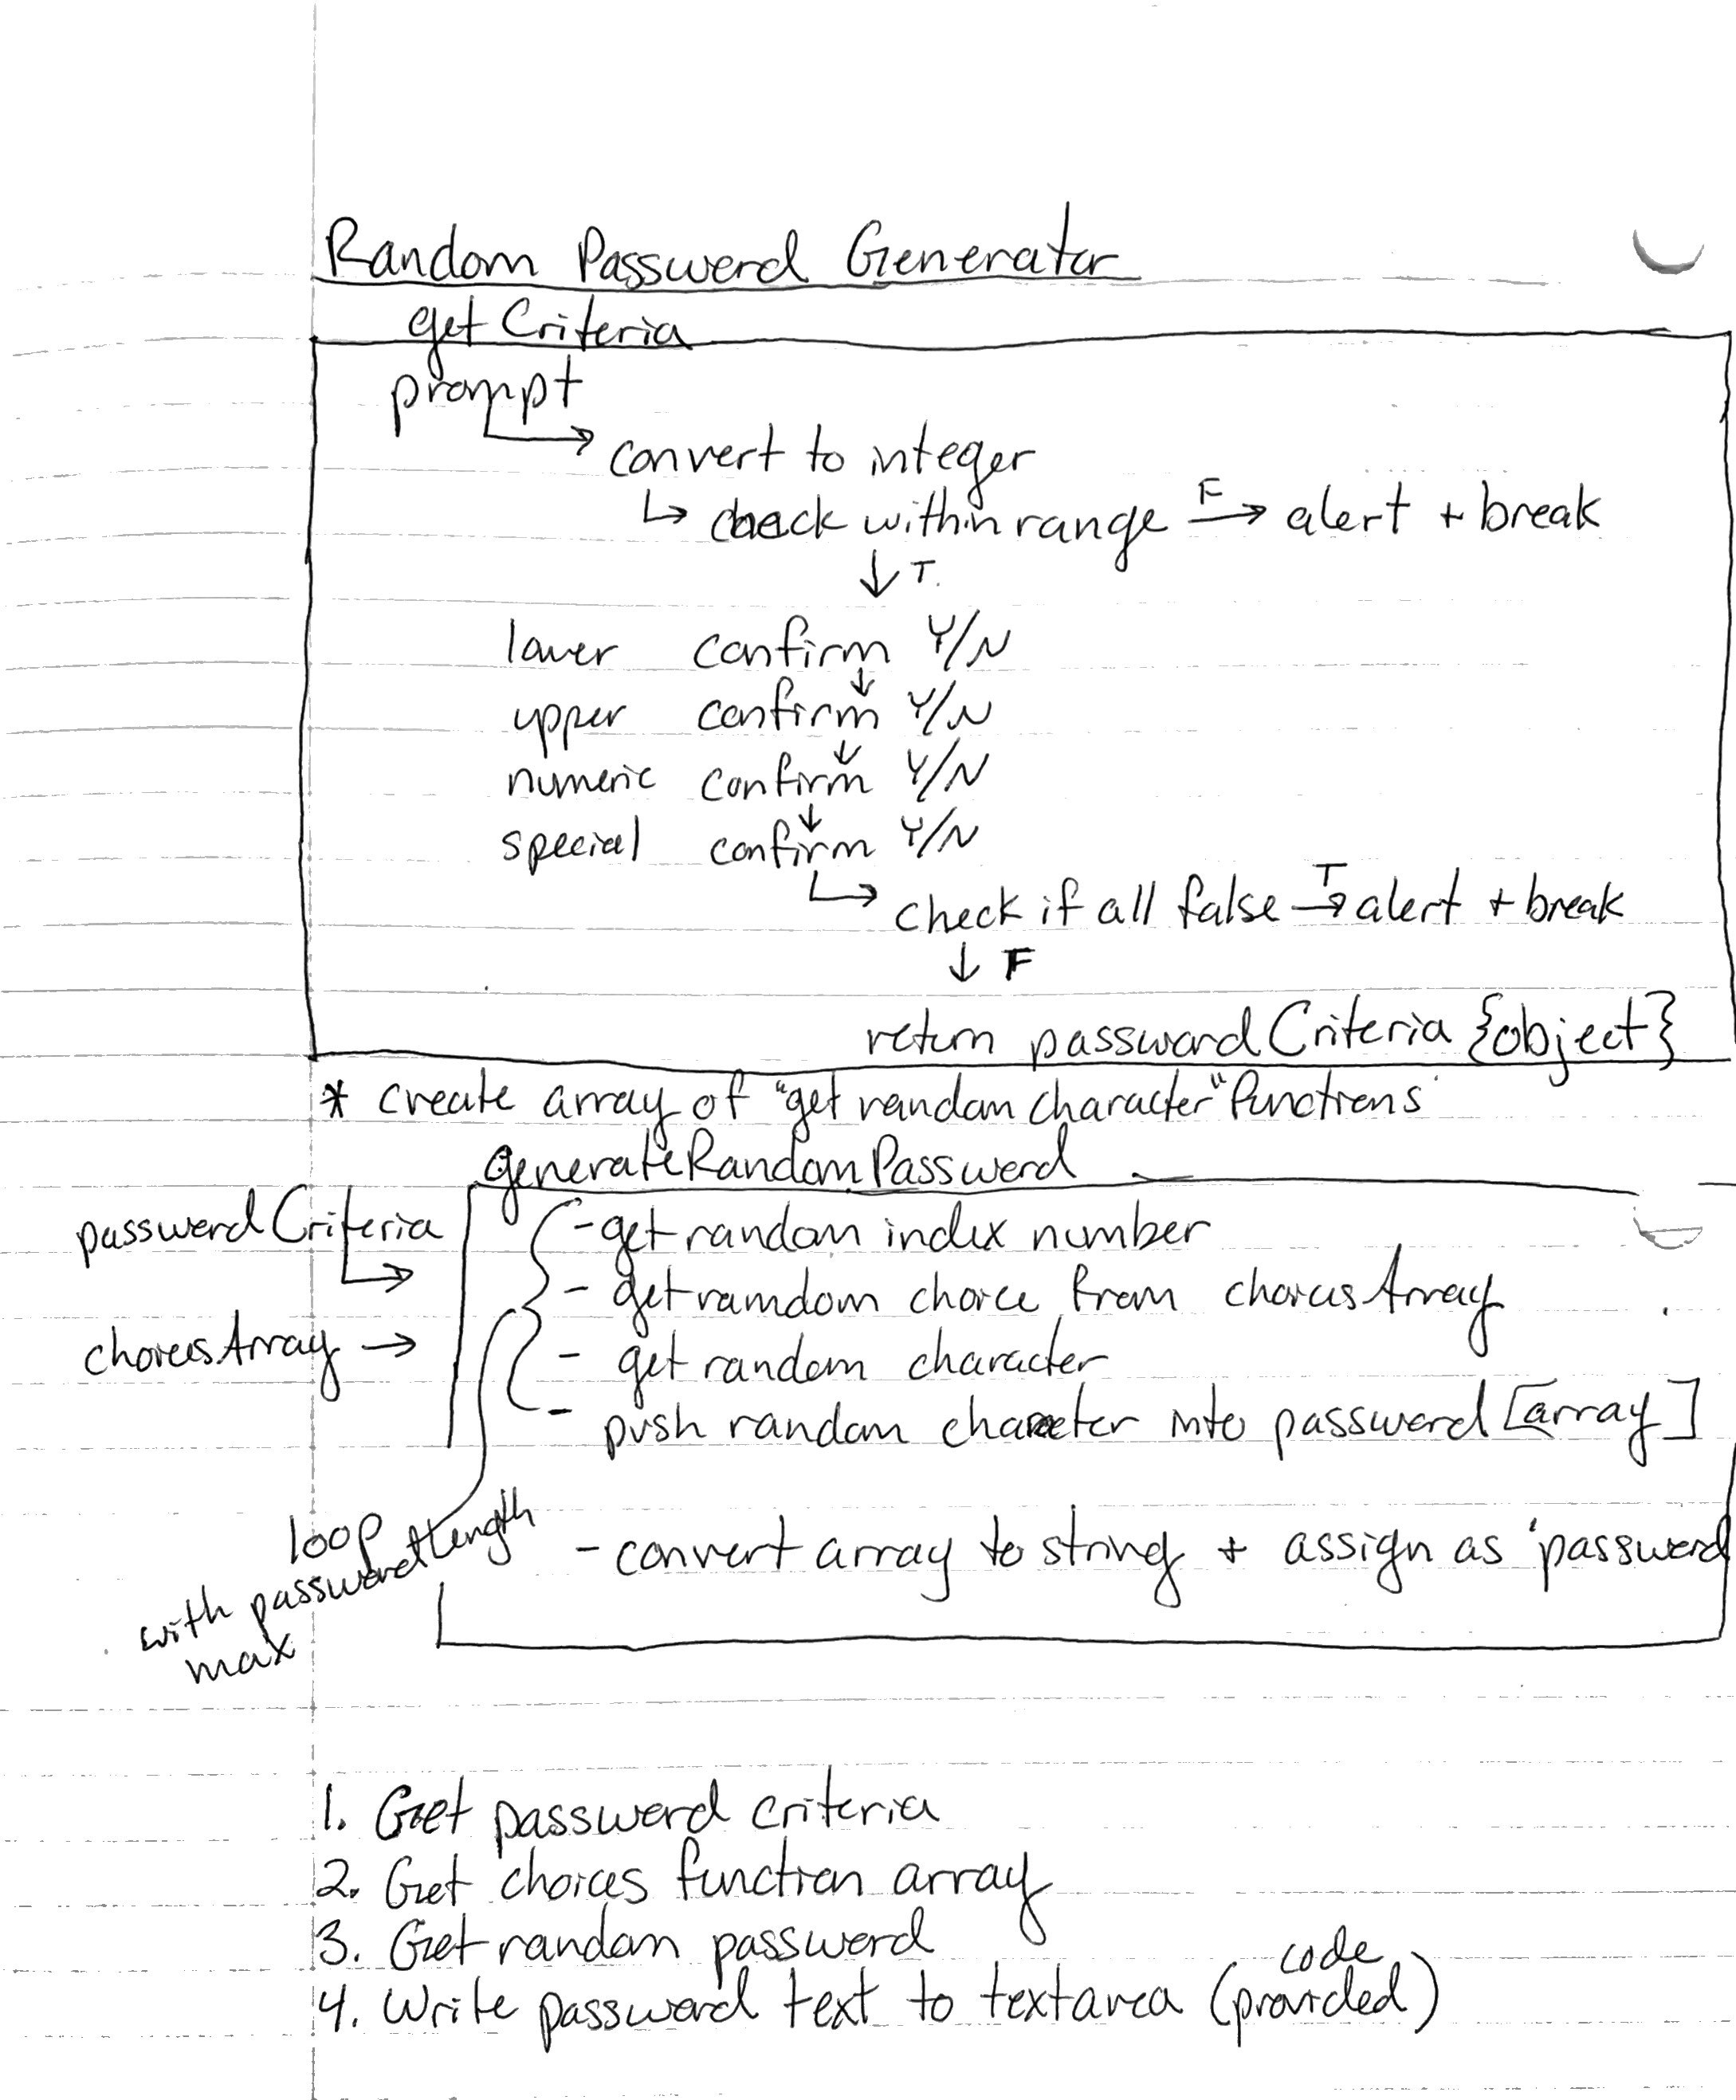 Random Password Generator
get Criteria
prompt
convert to integer
check within range F → alert + break
↓ T.
lower confirm Y/N
↓
upper confirm Y/N
↓
numeric confirm Y/N
↓
special confirm Y/N
↳ check if all false T → alert + break
↓ F
return passwordCriteria {object}
* create array of "get random character" functions
generateRandomPassword
passwordCriteria
- get random index number
- get ramdom choice from choicesArray
choicesArray →
- get random character
- push random character into password [array]
loop
with passwordLength
max
- convert array to string + assign as 'password
1. Get password criteria
2. Get choices function array
3. Get random password
4. Write password text to textarea (code provided)